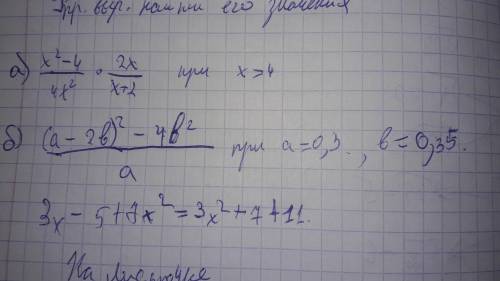 Упр. выр. найти его значения
а) x²-4/4x² · 2x/x+2 при x=4
б) (a-2b)²-4b²/a при a=0,3, b=0,35.
3x-5+7x²=3x²+7+11.
На